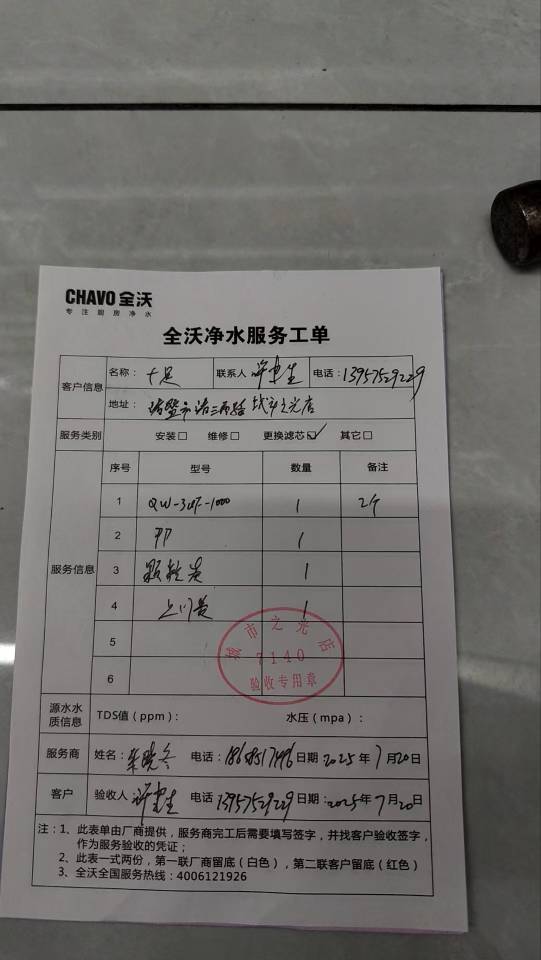 CHAVO 全沃
专注厨房净水
全沃净水服务工单
客户信息
名称： 十足 联系人 电话：13957529229
地址： 诸暨市 城市之光店
服务类别 安装□ 维修□ 更换滤芯☑ 其它□
服务信息
序号 型号 数量 备注
1 QW-3UF-1000 1 2个
2 PP 1
3 颗粒炭 1
4 上门费 1
5
6
城市之光店
7140
验收专用章
源水水质信息 TDS值（ppm）： 水压（mpa）：
服务商 姓名： 电话： 日期 2025年7月20日
客户 验收人 电话 13957529229 日期：2025年7月20日
注：1、此表单由厂商提供，服务商完工后需要填写签字，并找客户验收签字，
作为服务验收的凭证；
2、此表一式两份，第一联厂商留底（白色），第二联客户留底（红色）
3、全沃全国服务热线：4006121926